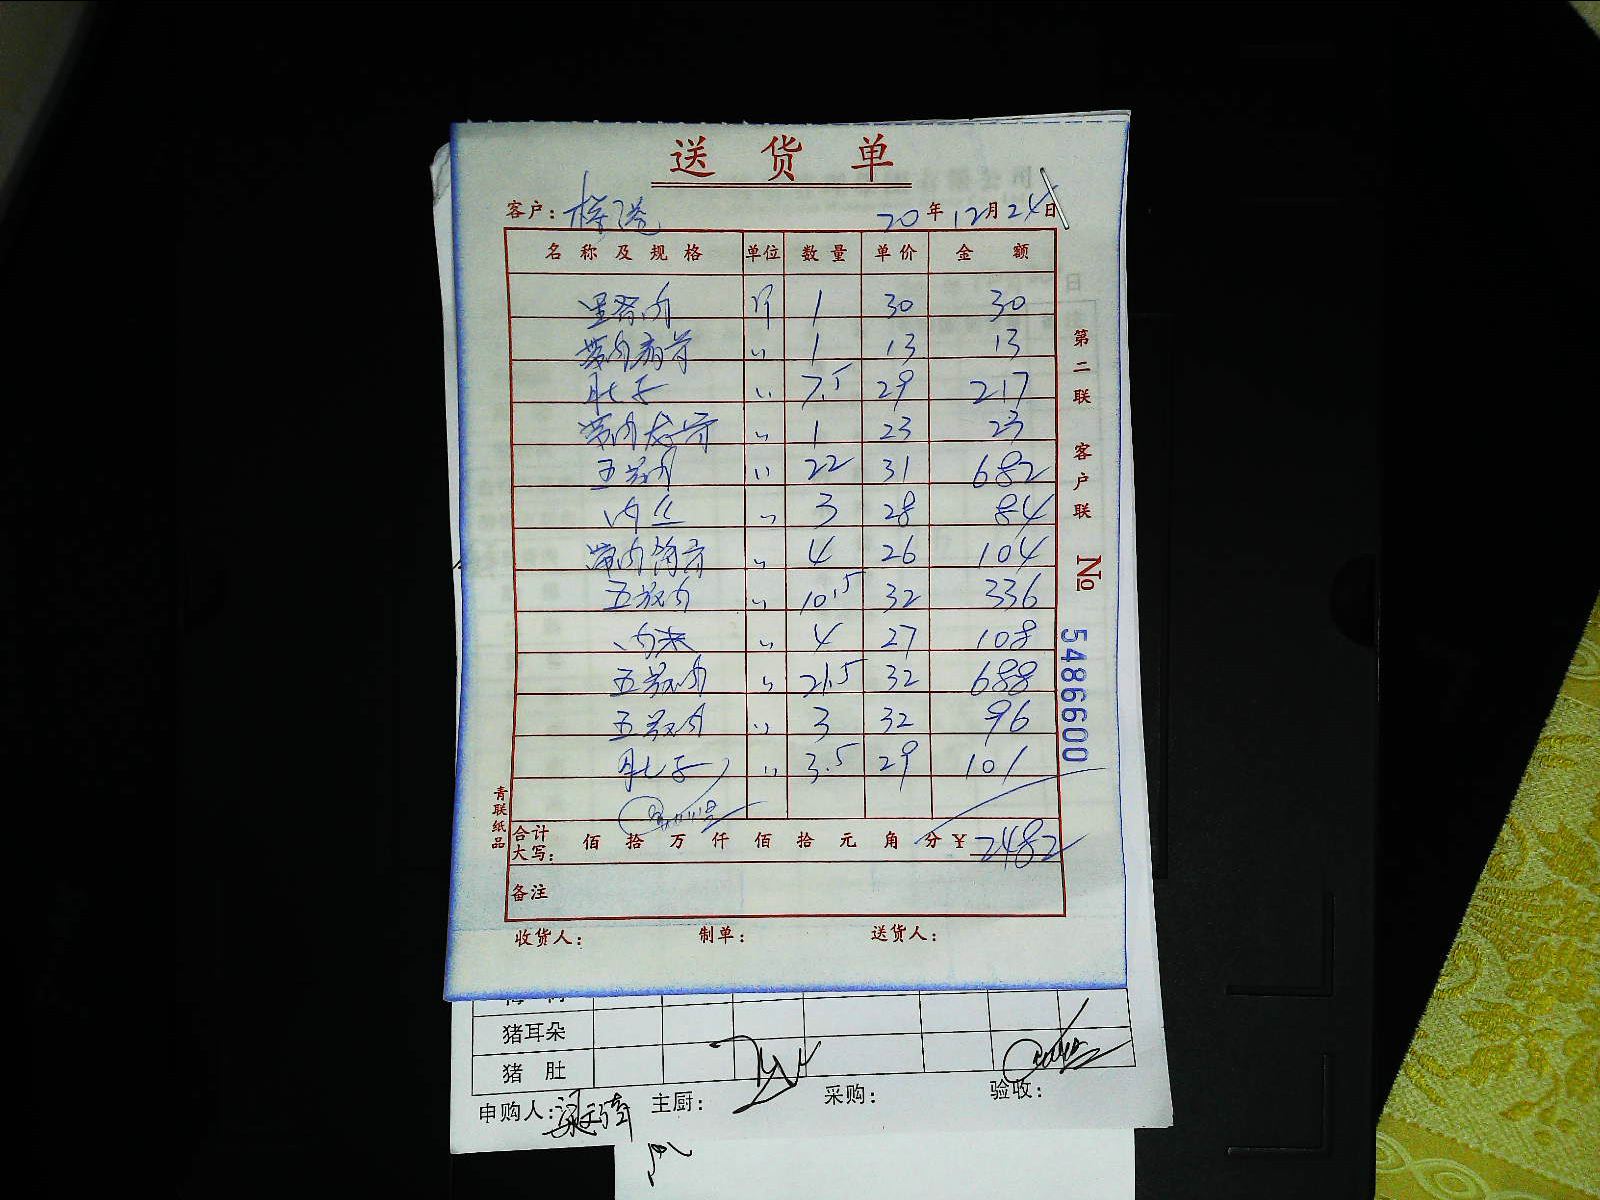 送货单
客户： 20年12月24日
名称及规格 单位 数量 单价 金额
里脊肉 斤 1 30 30
带肉扇骨 〃 1 13 13
肚子 〃 7.5 29 217
带肉龙骨 〃 1 23 23
五花肉 〃 22 31 682
肉丝 〃 3 28 84
带肉筒骨 〃 4 26 104
五花肉 〃 10.5 32 336
肉末 〃 4 27 108
五花肉 〃 21.5 32 688
五花肉 〃 3 32 96
肚子 〃 3.5 29 101
合计大写： 佰 拾 万 仟 佰 拾 元 角 分 ¥2482
备注
收货人： 制单： 送货人：
第二联 客户联
№ 5486600
青联纸品
猪耳朵
猪肚
申购人： 主厨： 采购： 验收：